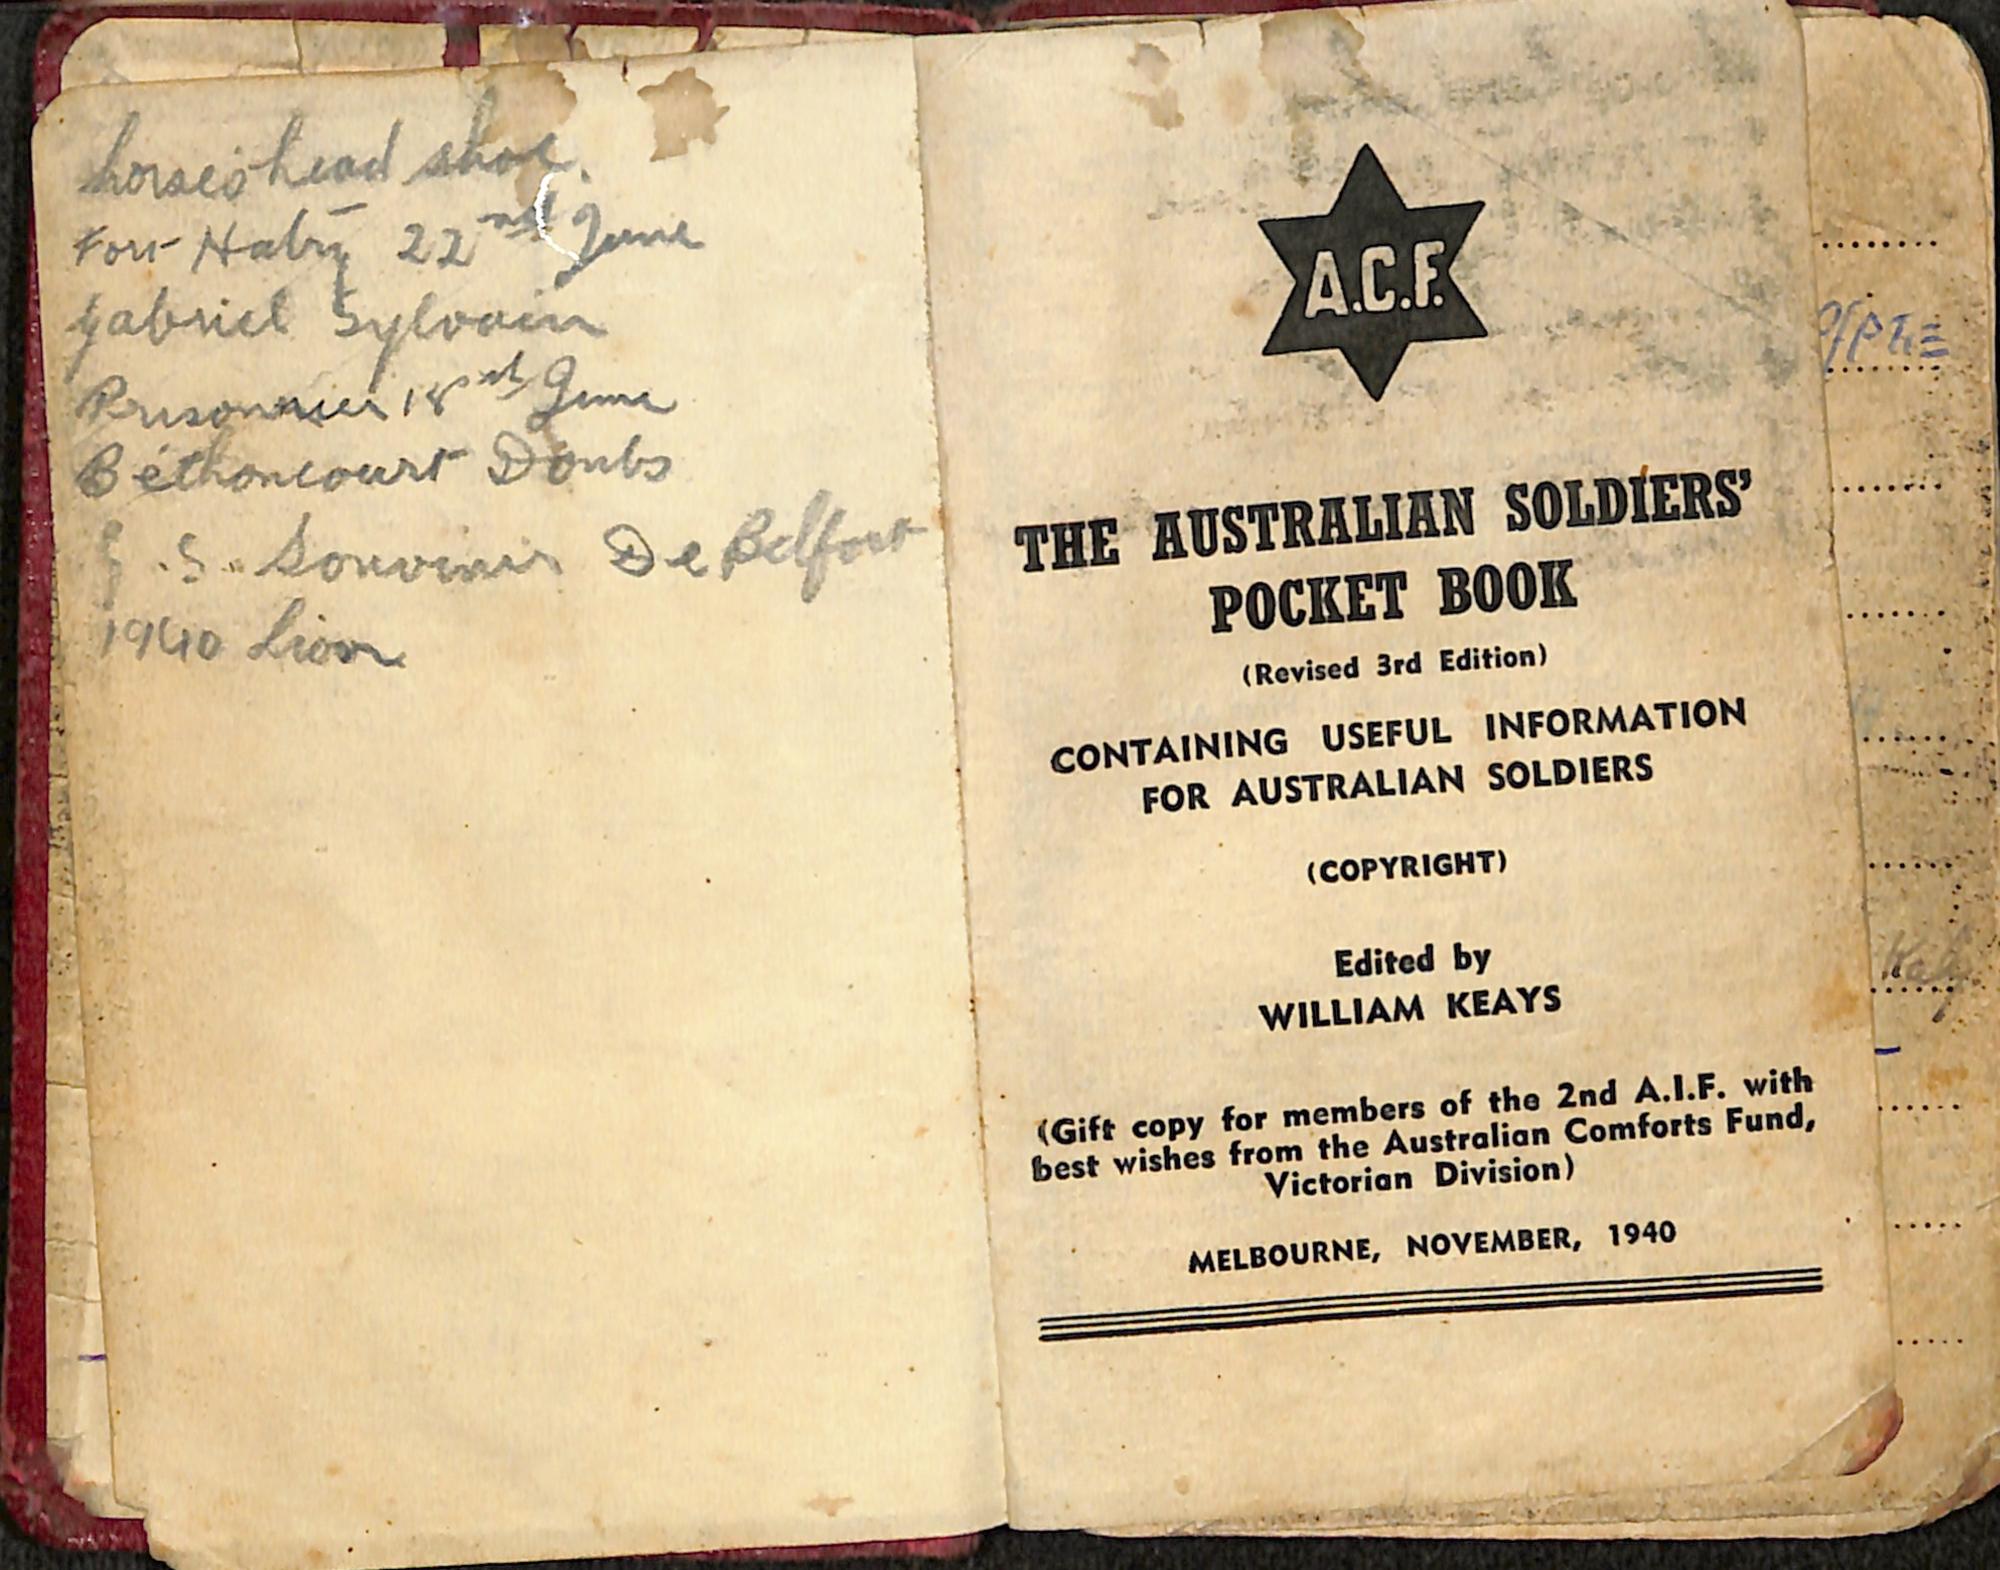 horse's head shoe.
Fort Hatry 22nd June
Gabriel Sylvain
Prisonnier 18st June
Béthoncourt Doubs
G.S. Souvenir De Belfort
1940 Lion
A.C.F.
THE AUSTRALIAN SOLDIERS'
POCKET BOOK
(Revised 3rd Edition)
CONTAINING USEFUL INFORMATION
FOR AUSTRALIAN SOLDIERS
(COPYRIGHT)
Edited by
WILLIAM KEAYS
(Gift copy for members of the 2nd A.I.F. with
best wishes from the Australian Comforts Fund,
Victorian Division)
MELBOURNE, NOVEMBER, 1940